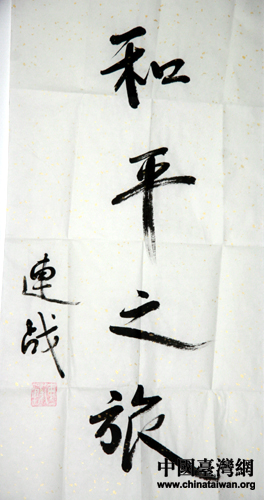 和平之旅
連战
中國臺灣網
www.chinataiwan.org